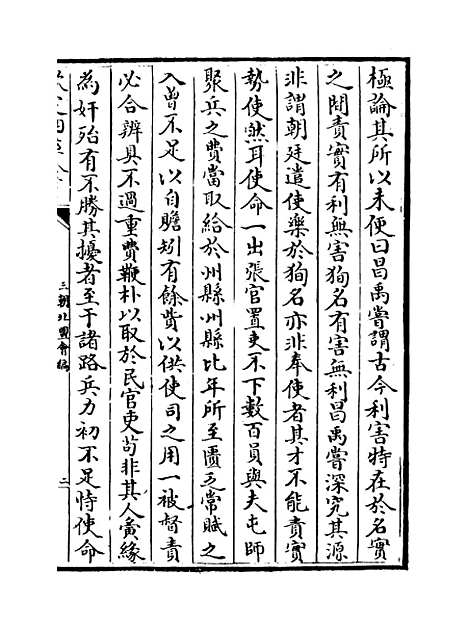 極論其所以未便曰昌禹嘗謂古今利害特在於名實
之間責實有利無害狥名有害無利昌禹嘗深究其源
非謂朝廷遣使樂於狥名亦非奉使者其才不能責實
勢使然耳使命一出張官置吏不下數百員與夫屯師
聚兵之費當取給於州縣州縣比年所至匱乏常賦之
入曾不足以自贍矧有餘貲以供使司之用一被督責
必合辨具不過重費鞭朴以取於民官吏苟非其人夤緣
為奸殆有不勝其擾者至于諸路兵力初不足恃使命
三朝北盟會編
三